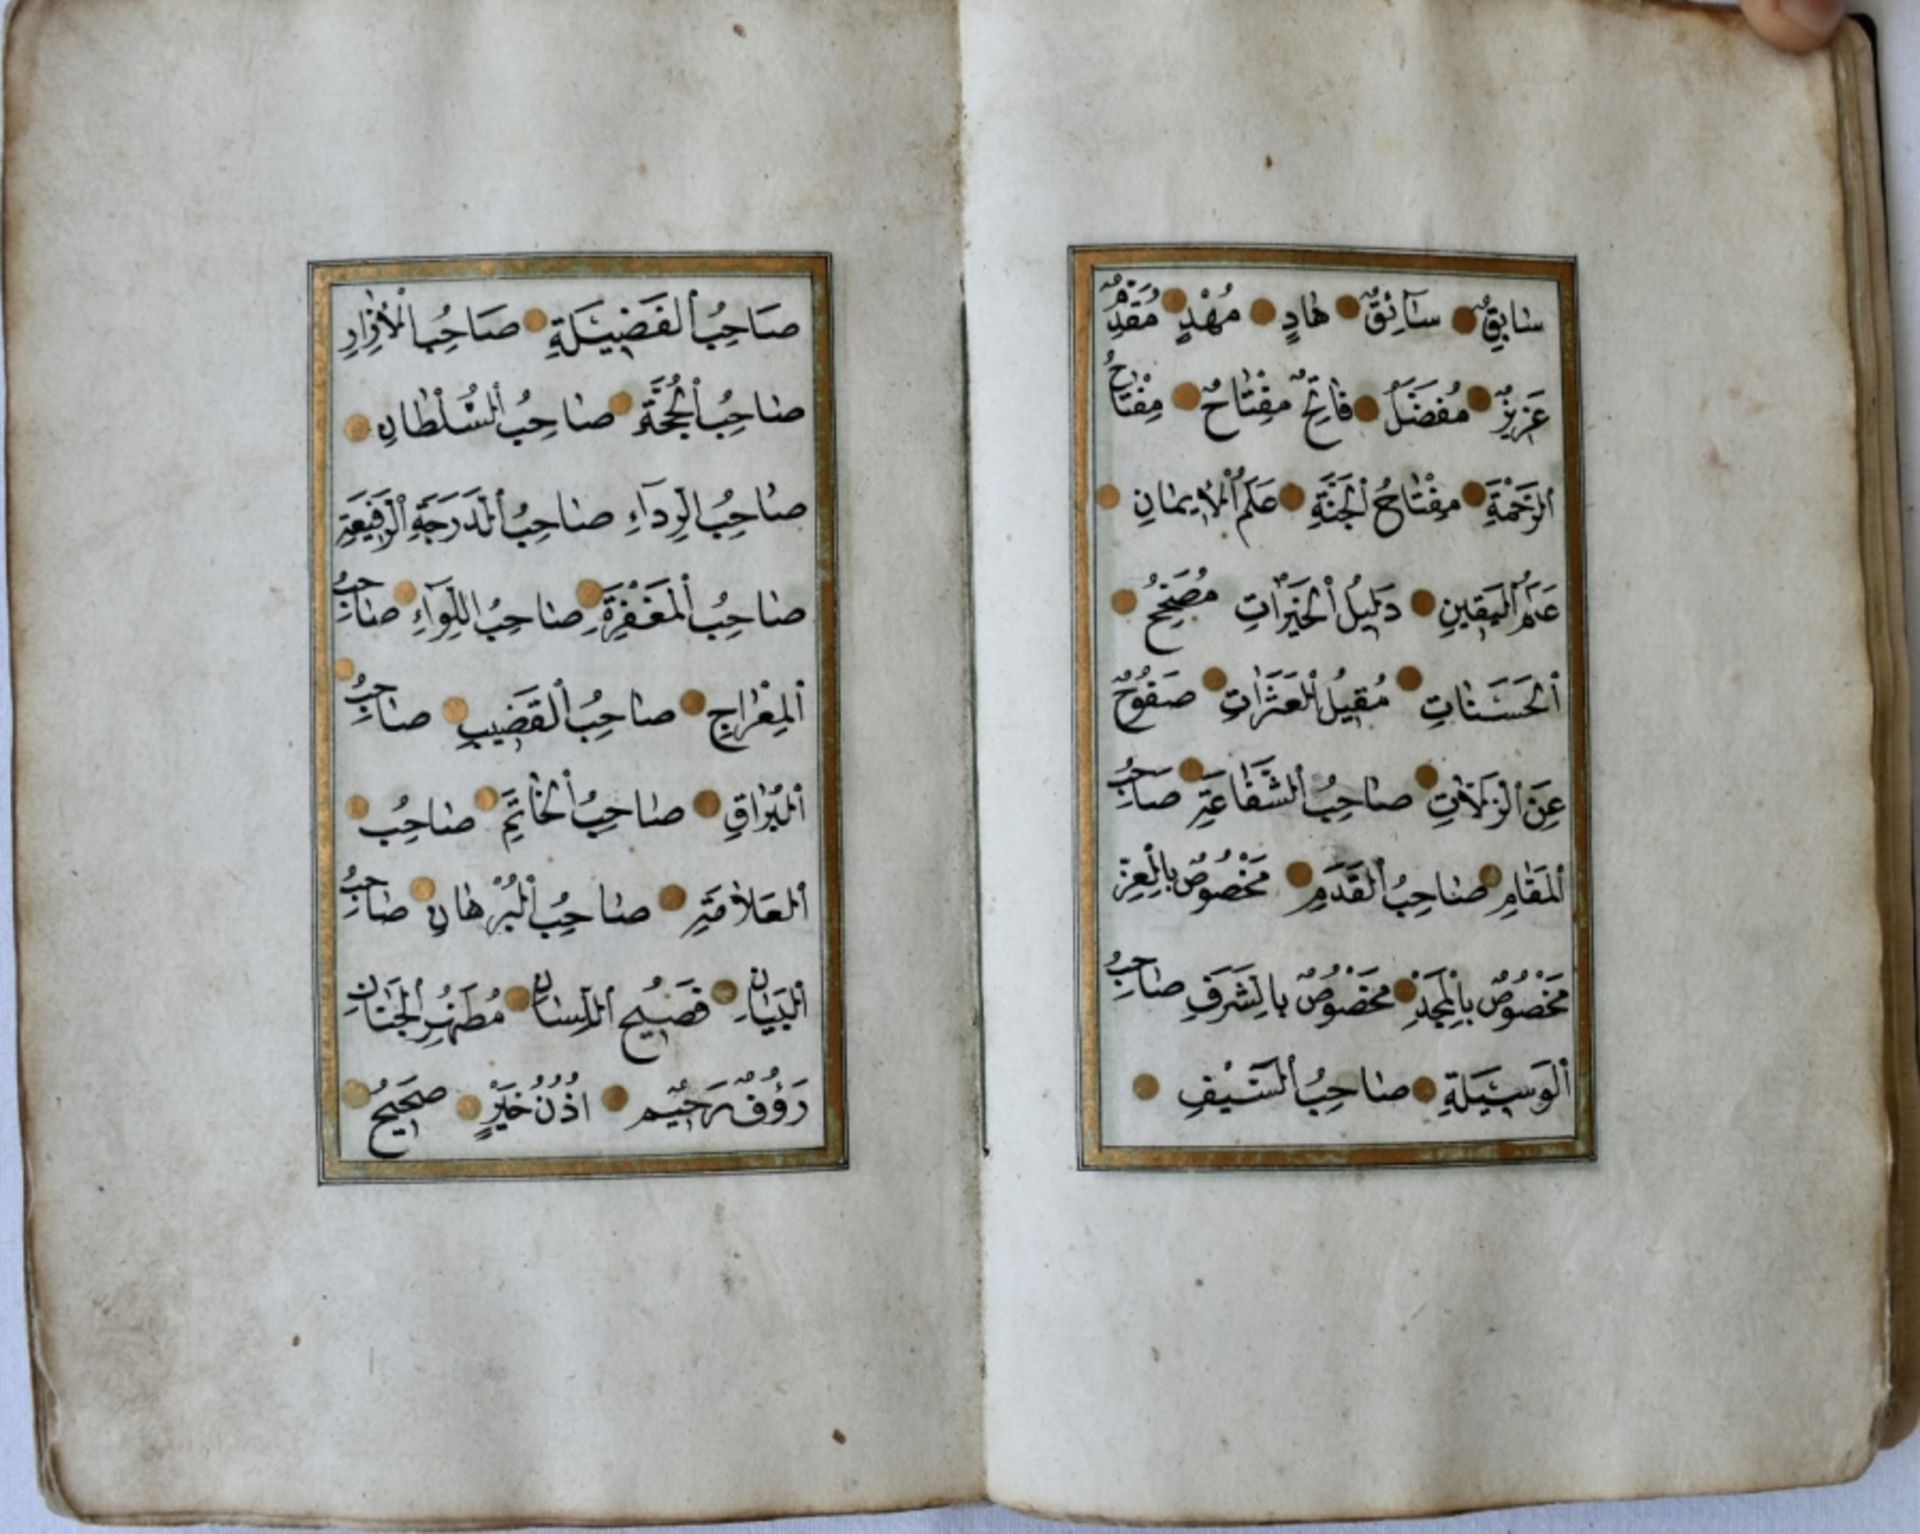 سَابِقٌ سَآئِقٌ هَادٍ مُهْدٍ مُقَدَّمٌ
عَزِيزٌ مُفَضَّلٌ فَاتِحٌ مِفْتَاحٌ مِفْتَاحُ
اَلرَّحْمَةِ مِفْتَاحُ الْجَنَّةِ عَلَمُ الْاِيمَانِ
عَلَمُ الْيَقِينِ دَلِيلُ الْخَيْرَاتِ مُصَحِّحُ
اَلْحَسَنَاتِ مُقِيلُ الْعَثَرَاتِ صَفُوحٌ
عَنِ الزَّلَاتِ صَاحِبُ الشَّفَاعَةِ صَاحِبُ
اَلْمَقَامِ صَاحِبُ الْقَدَمِ مَخْصُوصٌ بِالْعِزِّ
مَخْصُوصٌ بِالْمَجْدِ مَخْصُوصٌ بِالشَّرَفِ صَاحِبُ
اَلْوَسِيلَةِ صَاحِبُ السَّيْفِ
صَاحِبُ الْفَضِيلَةِ صَاحِبُ الْاِزَارِ
صَاحِبُ الْحُجَّةِ صَاحِبُ السُّلْطَانِ
صَاحِبُ الرِدَآءِ صَاحِبُ الدَّرَجَةِ الرَّفِيعَةِ
صَاحِبُ الْمَغْفِرَةِ صَاحِبُ اللِّوَآءِ صَاحِبُ
اَلْمِعْرَاجِ صَاحِبُ الْقَضِيبِ صَاحِبُ
اَلْبُرَاقِ صَاحِبُ الْخَاتَمِ صَاحِبُ
اَلْعَلَامَةِ صَاحِبُ الْبُرْهَانِ صَاحِبُ
اَلْبَيَانِ فَصِيحُ اللِّسَانِ مُطَهَّرُ الْجَنَانِ
رَؤُفٌ رَحِيمٌ اُذُنُ خَيْرٍ صَحِيحُ